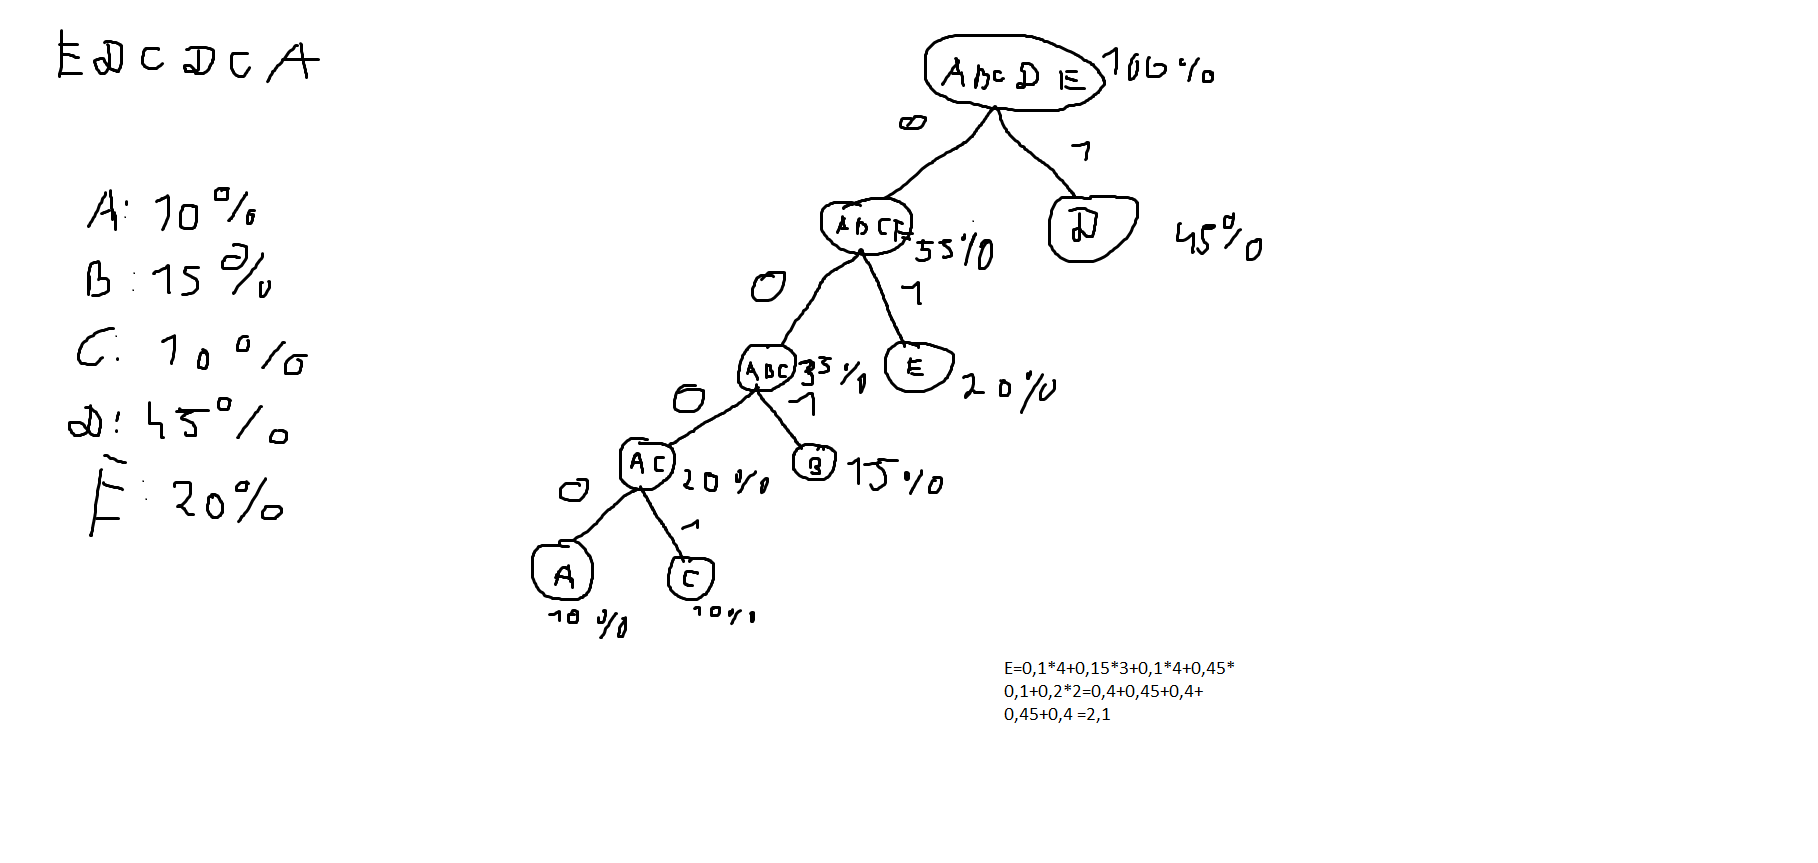 EDCDCA
A: 10%
B: 15%
C: 10%
D: 45%
E: 20%
ABCDE 100%
0
1
ABCE 55%
D 45%
0
1
ABC 35%
E 20%
0
1
AC 20%
B 15%
0
1
A
C
10%
10%
E=0,1*4+0,15*3+0,1*4+0,45*
0,1+0,2*2=0,4+0,45+0,4+
0,45+0,4 =2,1